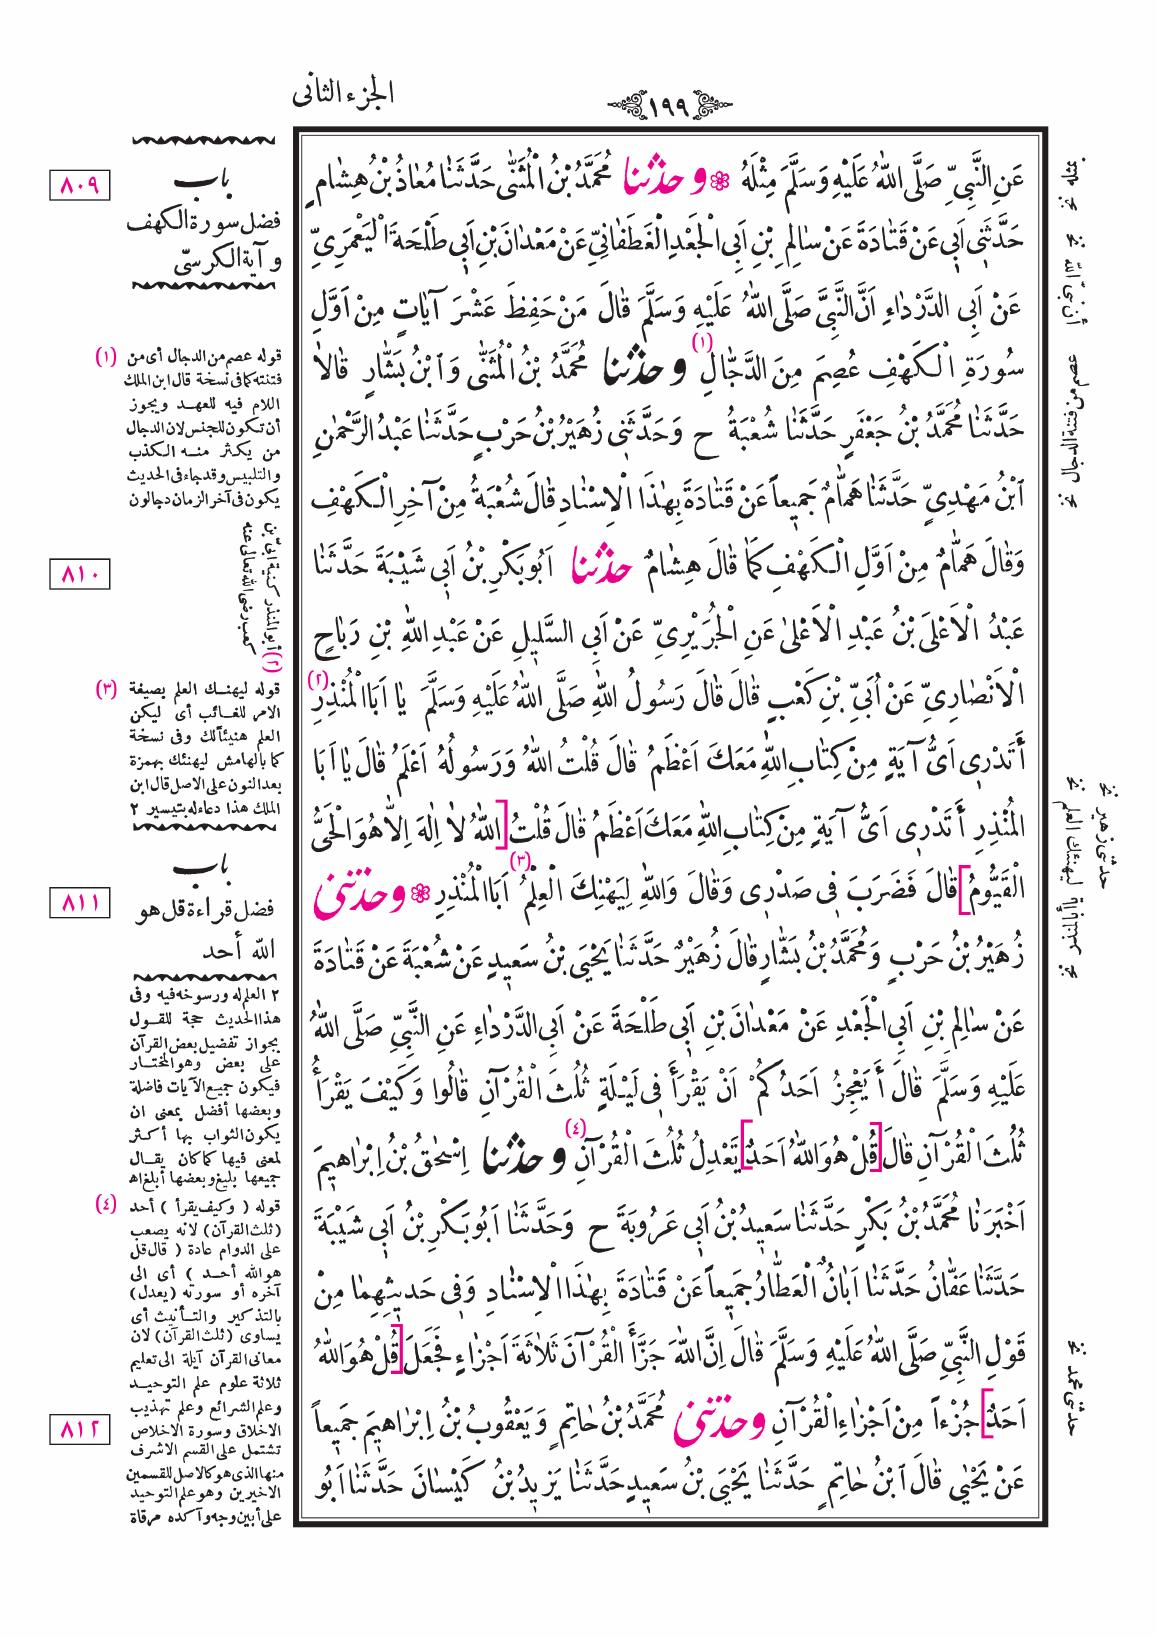 ١٩٩
الجزء الثانى
عَنِ النَّبِىِّ صَلَّى اللهُ عَلَيْهِ وَسَلَّمَ مِثْلَهُ ❁ وحدثنا مُحَمَّدُ بْنُ الْمُثَنّٰى حَدَّثَنٰا مُعٰاذُ بْنُ هِشٰامٍ
حَدَّثَنِى اَبِى عَنْ قَتٰادَةَ عَنْ سٰالِمِ بْنِ اَبِى الْجَعْدِ الْغَطَفٰانِىِّ عَنْ مَعْدٰانَ بْنِ اَبِى طَلْحَةَ الْيَعْمَرِىِّ
عَنْ اَبِى الدَّرْدٰاءِ اَنَّ النَّبِىَّ صَلَّى اللهُ عَلَيْهِ وَسَلَّمَ قٰالَ مَنْ حَفِظَ عَشْرَ آيٰاتٍ مِنْ اَوَّلِ
سُورَةِ الْكَهْفِ عُصِمَ مِنَ الدَّجّٰالِ (١) وحدثنا مُحَمَّدُ بْنُ الْمُثَنّٰى وَابْنُ بَشّٰارٍ قٰالاٰ
حَدَّثَنٰا مُحَمَّدُ بْنُ جَعْفَرٍ حَدَّثَنٰا شُعْبَةُ ح وَحَدَّثَنِى زُهَيْرُ بْنُ حَرْبٍ حَدَّثَنٰا عَبْدُ الرَّحْمٰنِ
ابْنُ مَهْدِىٍّ حَدَّثَنٰا هَمّٰامٌ جَمِيعاً عَنْ قَتٰادَةَ بِهٰذَا الْاِسْنٰادِ قٰالَ شُعْبَةُ مِنْ آخِرِ الْكَهْفِ
وَقٰالَ هَمّٰامٌ مِنْ اَوَّلِ الْكَهْفِ كَمٰا قٰالَ هِشٰامٌ حدثنا اَبُو بَكْرِ بْنُ اَبِى شَيْبَةَ حَدَّثَنٰا
عَبْدُ الْاَعْلَى بْنُ عَبْدِ الْاَعْلىٰ عَنِ الْجُرَيْرِىِّ عَنْ اَبِى السَّلِيلِ عَنْ عَبْدِ اللهِ بْنِ رَبٰاحٍ
الْاَنْصٰارِىِّ عَنْ اُبَىِّ بْنِ كَعْبٍ قٰالَ قٰالَ رَسُولُ اللهِ صَلَّى اللهُ عَلَيْهِ وَسَلَّمَ يٰا اَبَا الْمُنْذِرِ (٢)
أَتَدْرِى اَىُّ آيَةٍ مِنْ كِتٰابِ اللهِ مَعَكَ اَعْظَمُ قٰالَ قُلْتُ اللهُ وَرَسُولُهُ اَعْلَمُ قٰالَ يٰا اَبَا
الْمُنْذِرِ أَتَدْرِى اَىُّ آيَةٍ مِنْ كِتٰابِ اللهِ مَعَكَ اَعْظَمُ قٰالَ قُلْتُ [اللهُ لاٰ اِلٰهَ اِلاّٰ هُوَ الْحَىُّ
الْقَيُّومُ] قٰالَ فَضَرَبَ فِى صَدْرِى وَقٰالَ وَاللهِ لِيَهْنِكَ الْعِلْمُ (٣) اَبَا الْمُنْذِرِ ❁ وحدثنى
زُهَيْرُ بْنُ حَرْبٍ وَمُحَمَّدُ بْنُ بَشّٰارٍ قٰالَ زُهَيْرٌ حَدَّثَنٰا يَحْيَى بْنُ سَعِيدٍ عَنْ شُعْبَةَ عَنْ قَتٰادَةَ
عَنْ سٰالِمِ بْنِ اَبِى الْجَعْدِ عَنْ مَعْدٰانَ بْنِ اَبِى طَلْحَةَ عَنْ اَبِى الدَّرْدٰاءِ عَنِ النَّبِىِّ صَلَّى اللهُ
عَلَيْهِ وَسَلَّمَ قٰالَ أَيَعْجِزُ اَحَدُكُمْ اَنْ يَقْرَأَ فِى لَيْلَةٍ ثُلُثَ الْقُرْآنِ قٰالُوا وَكَيْفَ يَقْرَأُ
ثُلُثَ الْقُرْآنِ قٰالَ [قُلْ هُوَ اللهُ اَحَدٌ] تَعْدِلُ ثُلُثَ الْقُرْآنِ (٤) وحدثنا اِسْحٰقُ بْنُ اِبْرٰاهِيمَ
اَخْبَرَنٰا مُحَمَّدُ بْنُ بَكْرٍ حَدَّثَنٰا سَعِيدُ بْنُ اَبِى عَرُوبَةَ ح وَحَدَّثَنٰا اَبُو بَكْرِ بْنُ اَبِى شَيْبَةَ
حَدَّثَنٰا عَفّٰانُ حَدَّثَنٰا اَبٰانُ الْعَطّٰارُ جَمِيعاً عَنْ قَتٰادَةَ بِهٰذَا الْاِسْنٰادِ وَفِى حَدِيثِهِمٰا مِنْ
قَوْلِ النَّبِىِّ صَلَّى اللهُ عَلَيْهِ وَسَلَّمَ قٰالَ اِنَّ اللهَ جَزَّأَ الْقُرْآنَ ثَلاٰثَةَ اَجْزٰاءٍ فَجَعَلَ [قُلْ هُوَ اللهُ
اَحَدٌ] جُزْءاً مِنْ اَجْزٰاءِ الْقُرْآنِ وحدثنى مُحَمَّدُ بْنُ حٰاتِمٍ وَيَعْقُوبُ بْنُ اِبْرٰاهِيمَ جَمِيعاً
عَنْ يَحْيٰى قٰالَ ابْنُ حٰاتِمٍ حَدَّثَنٰا يَحْيَى بْنُ سَعِيدٍ حَدَّثَنٰا يَزِيدُ بْنُ كَيْسٰانَ حَدَّثَنٰا اَبُو
بمثله نخ
أن نبىّ الله نخ
عصم من فتنة الدجال نخ
حدثنى زهير نخ
ليهنئك العلم نخ
يا أبا المنذر نخ
حدثنى محمد نخ
٨٠٩
باب
فضل سورة الكهف
و آية الكرسىّ
(١) قوله عصم من الدجال أى من
فتنته كما فى نسخة قال ابن الملك
اللام فيه للعهد ويجوز
أن تكون للجنس لان الدجال
من يكثر منه الكذب
والتلبيس وقد جاء فى الحديث
يكون فى آخر الزمان دجالون
٨١٠
(٢) أبو المنذر كنية ابىّ بن
كعب رضى الله تعالى عنه
(٣) قوله ليهنك العلم بصيغة
الامر للغائب أى ليكن
العلم هنيئاً لك وفى نسخة
كما بالهامش ليهنئك بهمزة
بعد النون على الاصل قال ابن
الملك هذا دعاء له بتيسير ٢
٨١١
باب
فضل قراءة قل هو
الله أحد
٢ العلم له ورسوخه فيه وفى
هذا الحديث حجة للقول
بجواز تفضيل بعض القرآن
على بعض وهو المختار
فيكون جميع الآيات فاضلة
وبعضها أفضل بمعنى ان
يكون الثواب بها أكثر
لمعنى فيها كما كان يقال
جميعها بليغ وبعضها أبلغ اه
(٤) قوله ( وكيف يقرأ ) أحد
(ثلث القرآن) لانه يصعب
على الدوام عادة ( قال قل
هو الله أحد ) أى الى
آخره أو سورته (يعدل)
بالتذكير والتأنيث أى
يساوى (ثلث القرآن) لان
معانى القرآن آيلة الى تعليم
ثلاثة علوم علم التوحيد
وعلم الشرائع وعلم تهذيب
الاخلاق وسورة الاخلاص
تشتمل على القسم الاشرف
منها الذى هو كالاصل للقسمين
الاخيرين وهو علم التوحيد
على أبين وجه وآكده مرقاة
٨١٢